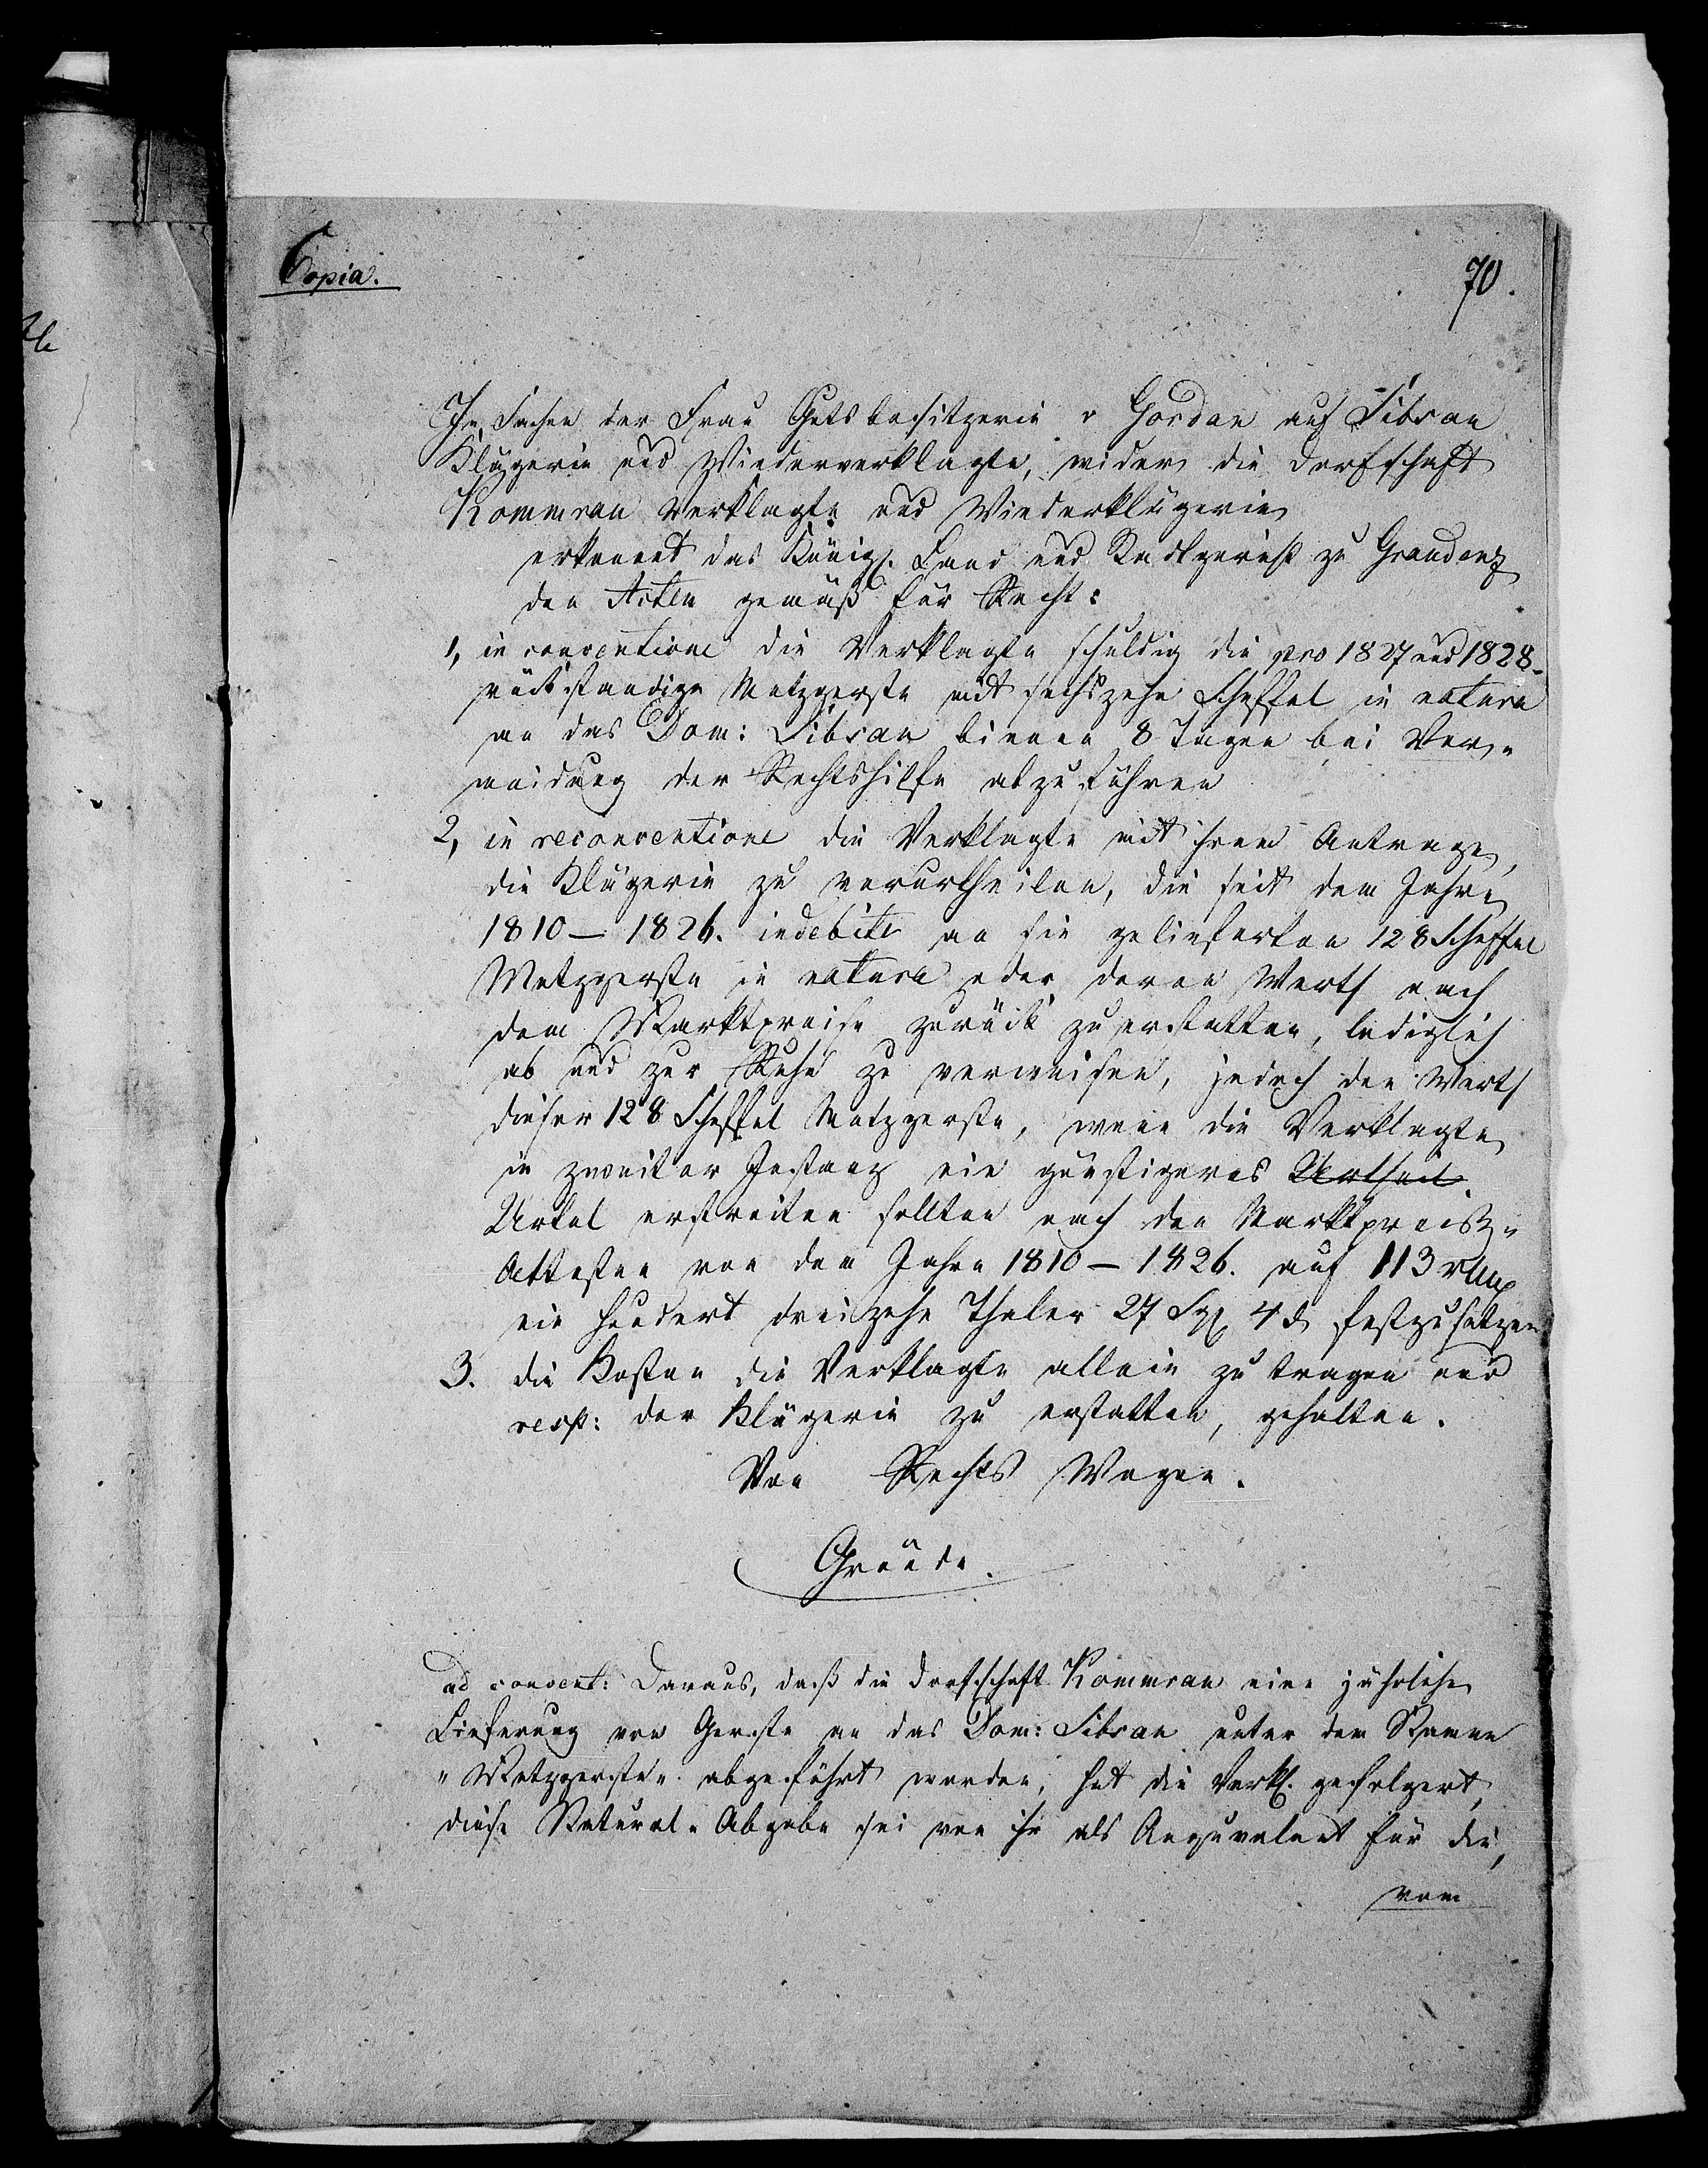 Copia.
70.
In Sachen der Frau Gutsbesitzerin v Gordon auf Sibsau
Klägerin und Wiederverklagte, wider die Dorfschaft
Kommrau Verklagte und Wiederklägerin
erkennt das Königl. Land und Stadtgericht zu Graudenz
den Acten gemäß für Recht:
1, in conventione die Verklagte schuldig die pro 1827 und 1828
rückständige Metzgerste mit sechszehn Scheffel in natura
an das Dom: Sibsau binnen 8 Tagen bei Ver-
meidung der Rechtshilfe abzuführen
2, in reconventione die Verklagte mit ihrem Antrage,
die Klägerin zu verurtheilen, die seit dem Jahre
1810 – 1826. indebite an sie gelieferten 128 Scheffel
Metzgerste in natura oder deren Werth nach
dem Marktpreise zurück zu erstatten, lediglich
ab und zur Ruhe zu verweisen, jedoch den Werth
dieser 128 Scheffel Metzgerste, wenn die Verklagte
in zweiter Instanz ein günstigeres Urtheil
Urtel erstreiten sollten nach den Marktpreis-
Attesten von den Jahren 1810 – 1826. auf 113 rthlr
ein hundert dreizehn Thaler 27 Sgr 4 d festzusetzen
3. die Kosten die Verklagte allein zu tragen und
resp: der Klägerin zu erstatten, gehalten.
Von Rechts Wegen.
Gründe.
ad convent: Daraus, daß die Dorfschaft Kommrau eine jährliche
Lieferung von Gerste an das Dom: Sibsau unter dem Namen
"Metzgerste" abgeführt worden, hat die Verkl. gefolgert,
diese Natural-Abgabe sei von ihr als Aequivalent für die,
vom